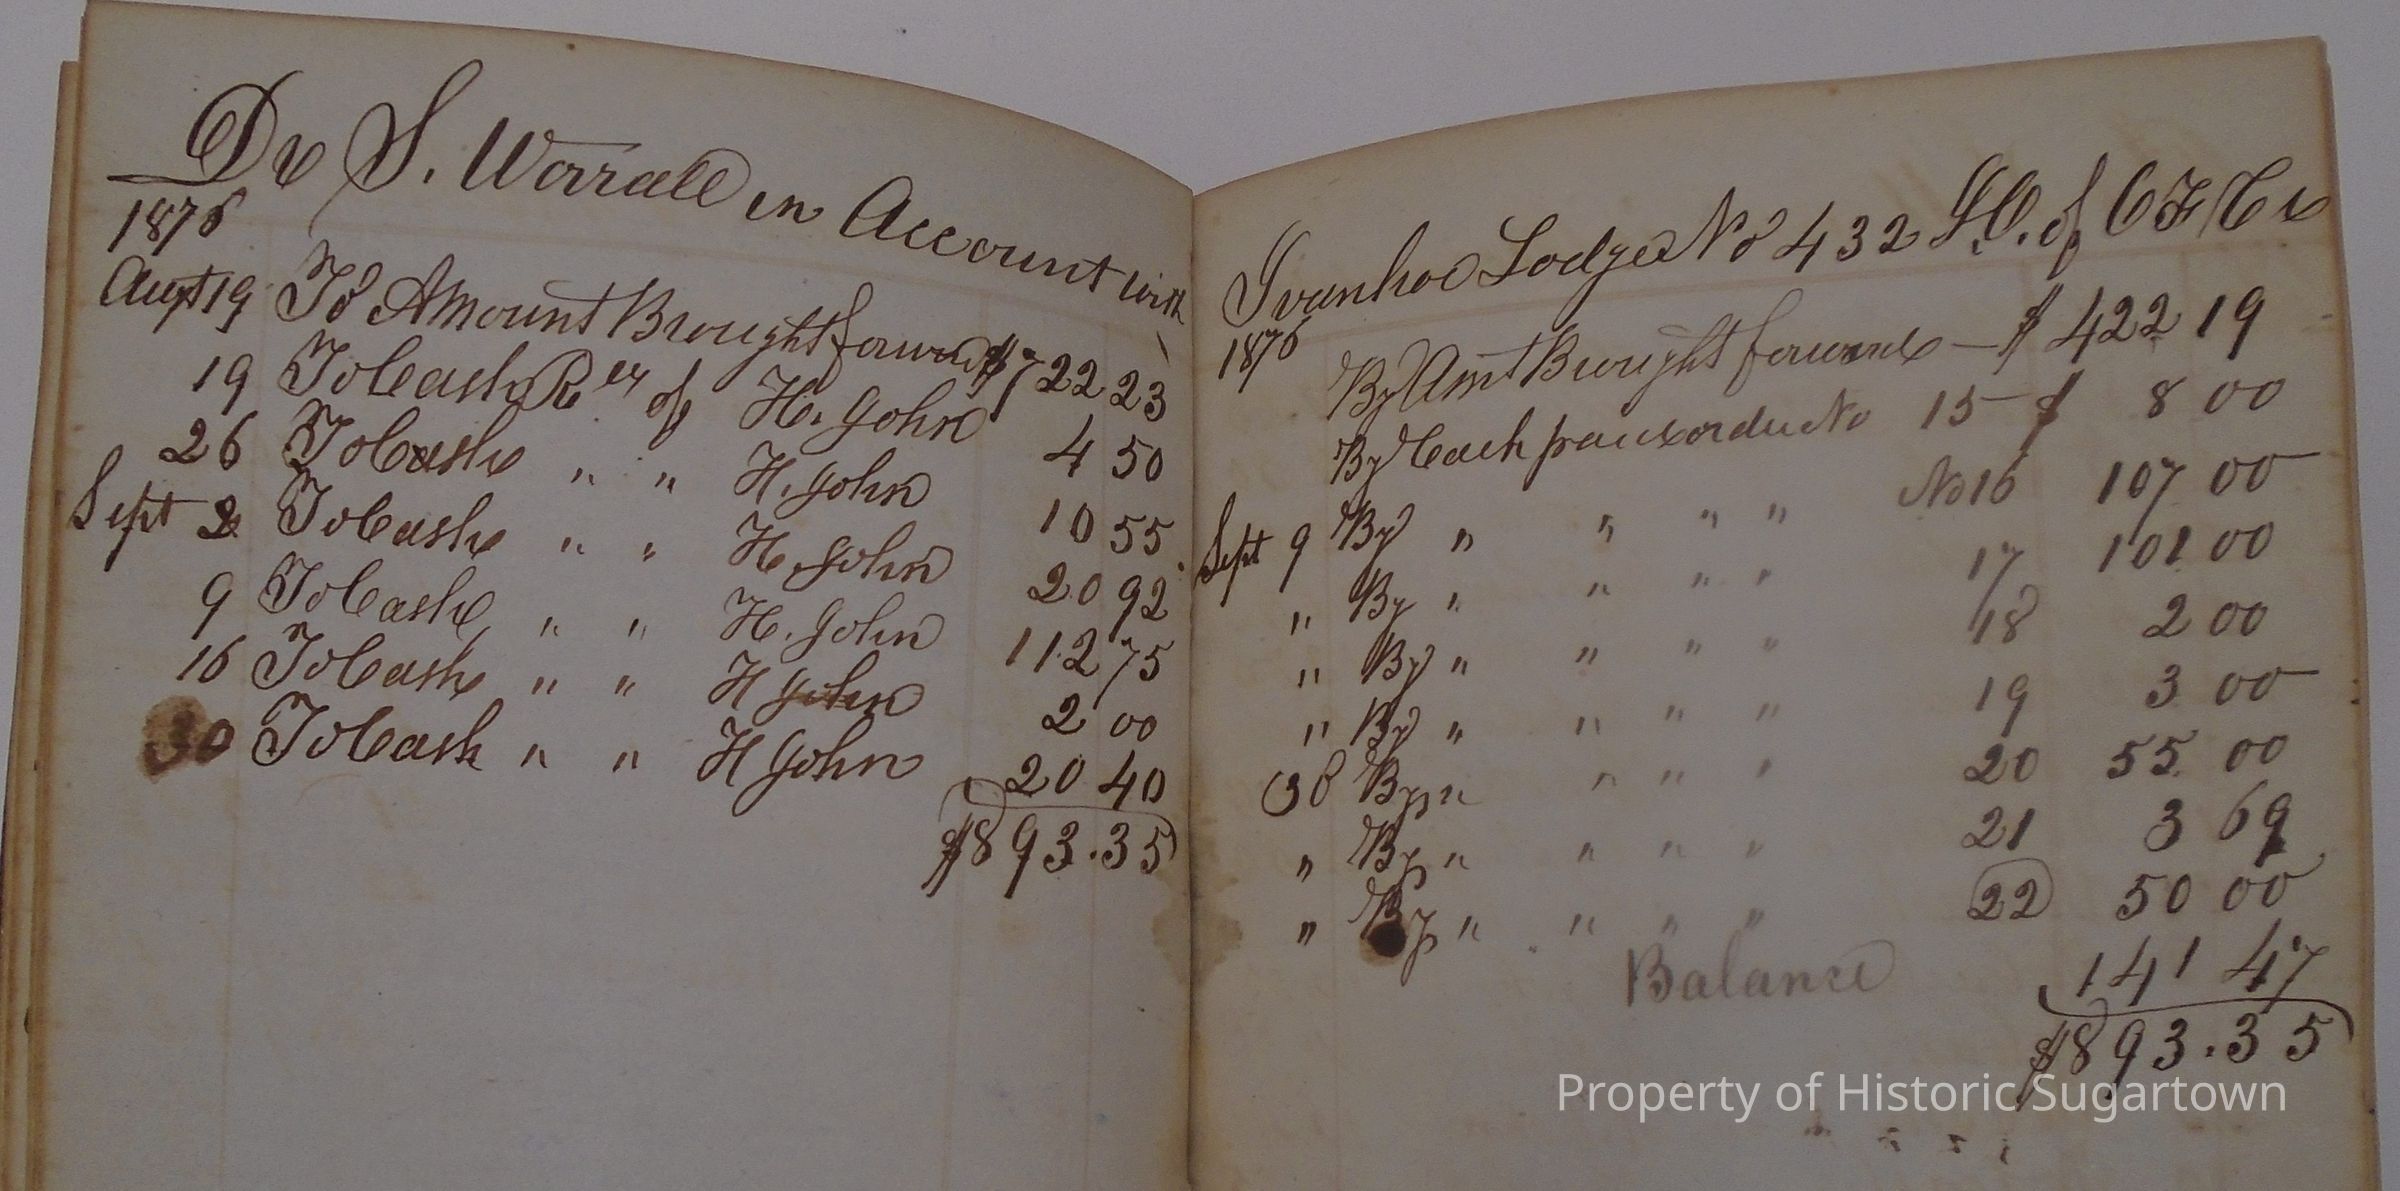 Dr S. Worrall in Account with
1876
Augt 19 To Amount Brought forward $722 23
19 To Cash Rec of H. John 4 50
26 To Cash " " H. John 10 55
Sept 2 To Cash " " H. John 20 92
9 To Cash " " H. John 112 75
16 To Cash " " H John 2 00
30 To Cash " " H John 20 40
$893.35
Ivanhoe Lodge No 432 I.O. of O F Cr
1876
By Amt Brought forward — $ 422 19
By Cash order No 15 — $ 8 00
Sept 9 By " " " " No 16 107 00
" By " " " " 17 101 00
" By " " " " 18 2 00
" By " " " " 19 3 00
30 By " " " " 20 55 00
" By " " " " 21 3 69
" By " " " " 22 50 00
Balance 141 47
$893.35
Property of Historic Sugartown